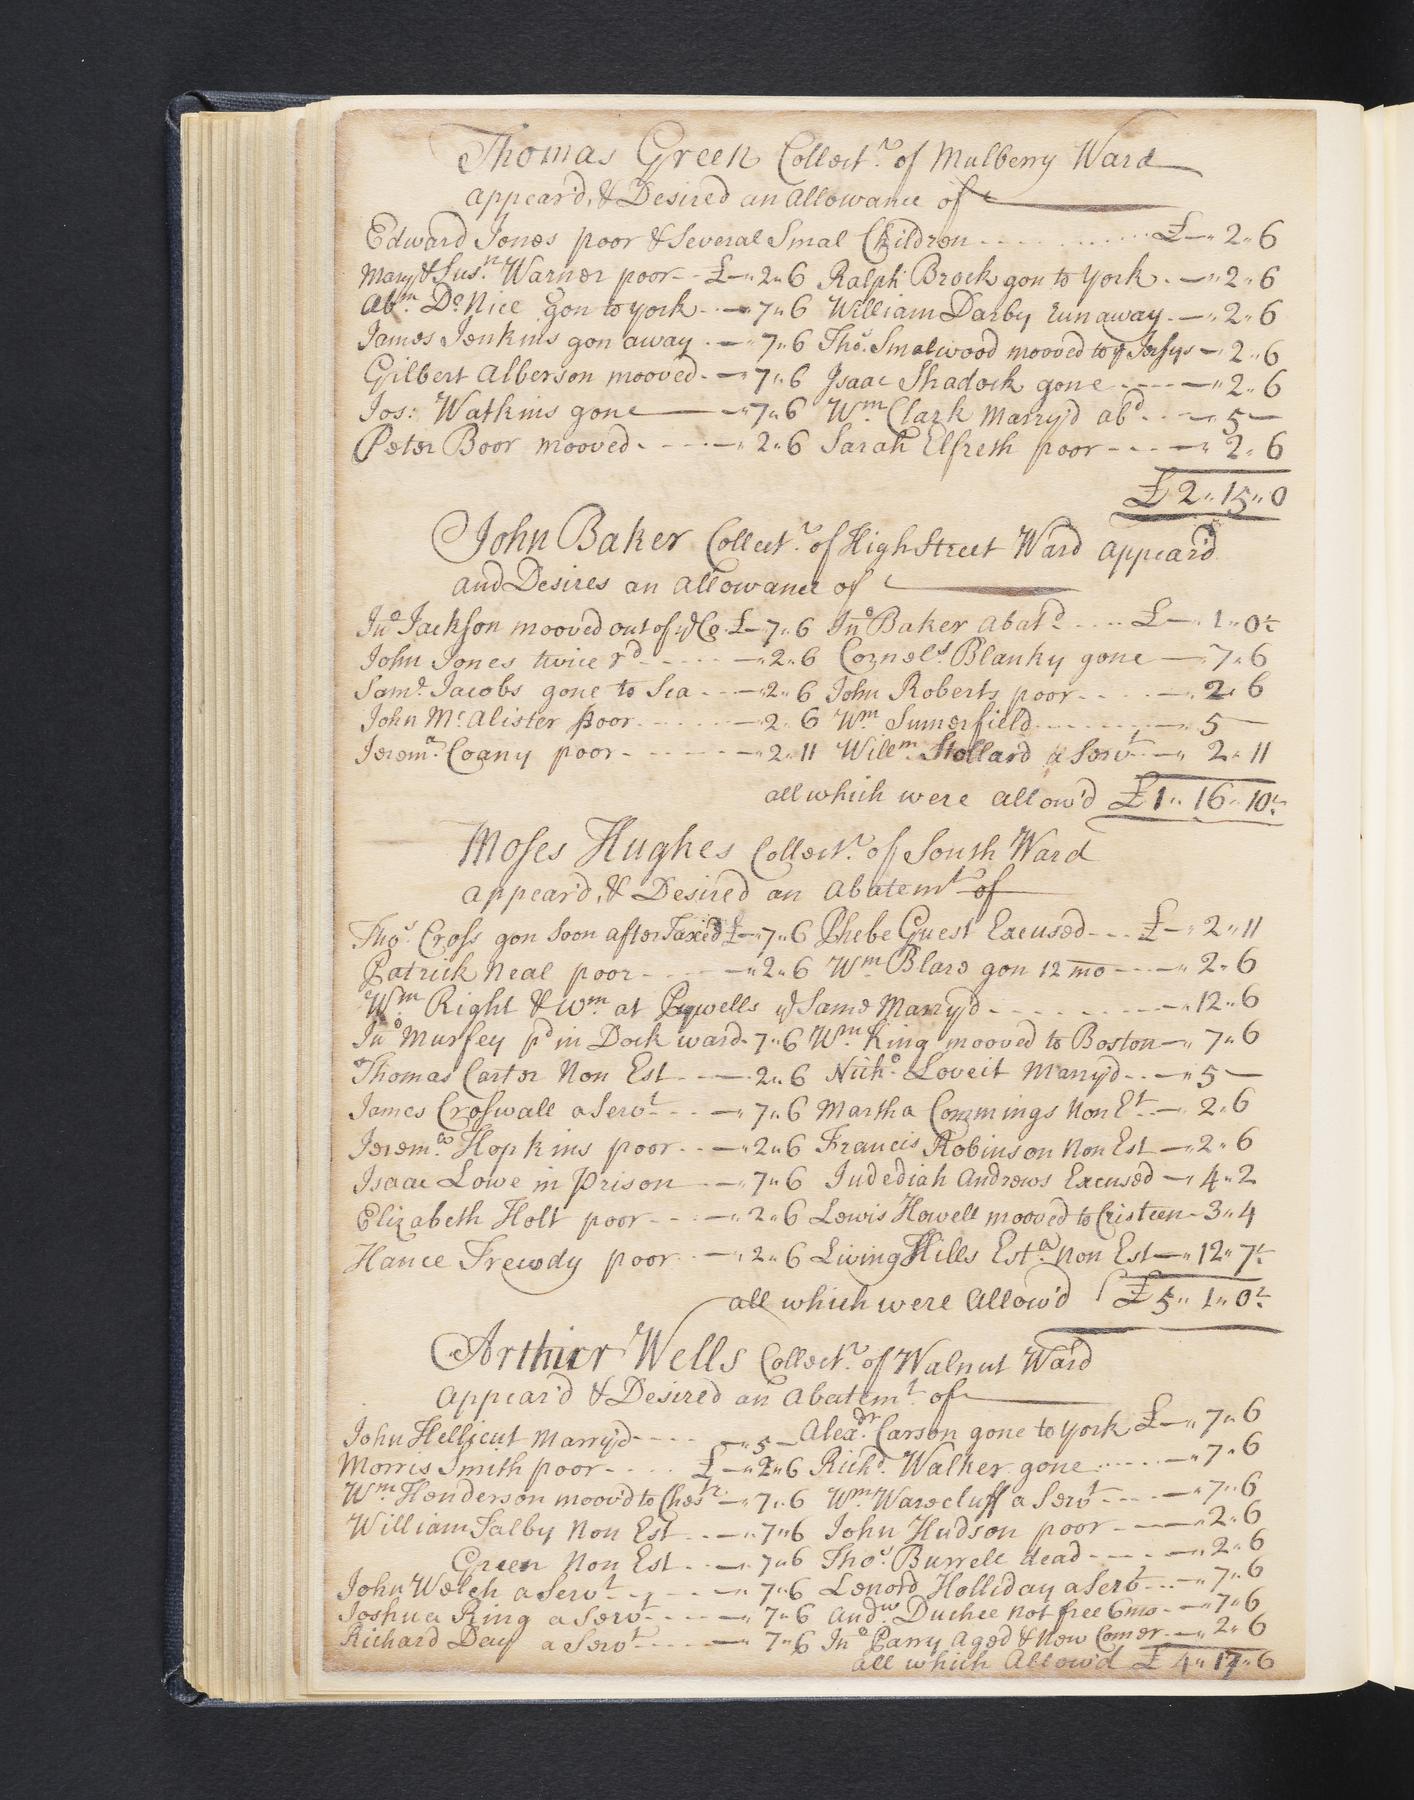 Thomas Green Collectr. of Mulberry Ward
appear'd, & Desired an allowance of
Edward Jones poor & Several Smal Children . . . . . . . . . . £—„ 2„ 6
Mary & Susn. Warner poor - - £—„2„6 Ralph Brock gon to york . —„ 2„ 6
Abm. De Nice gon to york - . —7„6 William Darby run away . —„ 2„ 6
James Jenkins gon away . —„7„6 Thos. Smalwood mooved to ye Jersys — 2„ 6
Gilbert Alberson mooved . —„7„6 Isaac Shadock gone - - - - —„ 2„ 6
Jos: Watkins gone —— —„7„6 Wm Clark Marry'd abd. . - —„ 5 —
Peter Boor mooved . - - - —„ 2„6 Sarah Elfreth poor - - - —„ 2„ 6
£2„ 15„ 0
John Baker Collectr. of High Street Ward appear'd
and Desires an allowance of
Jno. Jackson mooved out of ye Co. £—7„6 Jno Baker abatd . . . . £—„ 1„ 0½
John Jones twice rd . - - - - —„2„6 Cornels Blanky gone —„ 7„ 6
Saml. Jacobs gone to Sea . . . —„2„ 6 John Roberts poor . . . . —„ 2„ 6
John McAlister poor . . . . . . —„2„ 6 Wm Sumerfield . . . . . . —„ 5 —
Jerema. Coany poor - . . . . . —„2„11 Willm. Stollard a Servt. —„ 2„ 11
all which were allow'd £1„ 16„ 10½
Moses Hughes Collectr. of South Ward
appear'd, & Desired an abatemt of
Thos. Cross gon Soon after Taxed £—„7„6 Phebe Guest Excused - - - £—„ 2„11
Patrick Neal poor - . . . . —„2„6 Wm Blare gon 12 mo - - - —„ 2„6
Wm Right & Wm. at Powells ye Same Marry'd . . . . . . . —„12„6
Jno Mursey pd in Dock ward. 7„6 Wm. King mooved to Boston —„ 7„6
Thomas Carter Non Est . . —„2„6 Nicho. Loveit Marry'd . . —„5 —
James Croswall a Servt. . . —„7„6 Martha Commings Non Et. . —„ 2„6
Jerem. Hopkins poor . . —„2„6 Francis Robinson Non Est —„ 2„6
Isaac Lowe in prison . . —„7„6 Judediah Andrews Excused —„ 4„2
Elizabeth Holt poor - . . —„2„6 Lewis Howell mooved to Cristeen - 3„4
Hance Frewdy poor . . —„2„6 Living Hills Esta. Non Est —„12„7½
all which were Allow'd £5„ 1„ 0½
Arthur Wells Collectr. of Walnut Ward
appear'd & Desired an abatemt. of
John Hellicut Marry'd - - - - —„5 — Alexdr. Carson gone to york £—„ 7„6
Morris Smith poor . . . . . £—„2„6 Richd. Walker gone . . . . . —„7„6
Wm Henderson moov'd to Chestr. —„7„6 Wm. Warecluff a Servt. . . . —„7„6
William Salby Non Est . . . —„7„6 John Hudson poor - - —„2„6
Green Non Est . . —„7„6 Thos. Burrele dead . . . . —„2„6
John Welch a Servt. . . . . —„7„6 Lenord Holliday a Servt. . . —„7„6
Joshua Ring a Servt. . . . . —„ 7„6 Andw. Duchee not free 6mo. . —„7„6
Richard Day a Servt. . . . . —„ 7„6 Jno. Parry aged & New Comer —„2„6
all which Allow'd £ 4„ 17„ 6